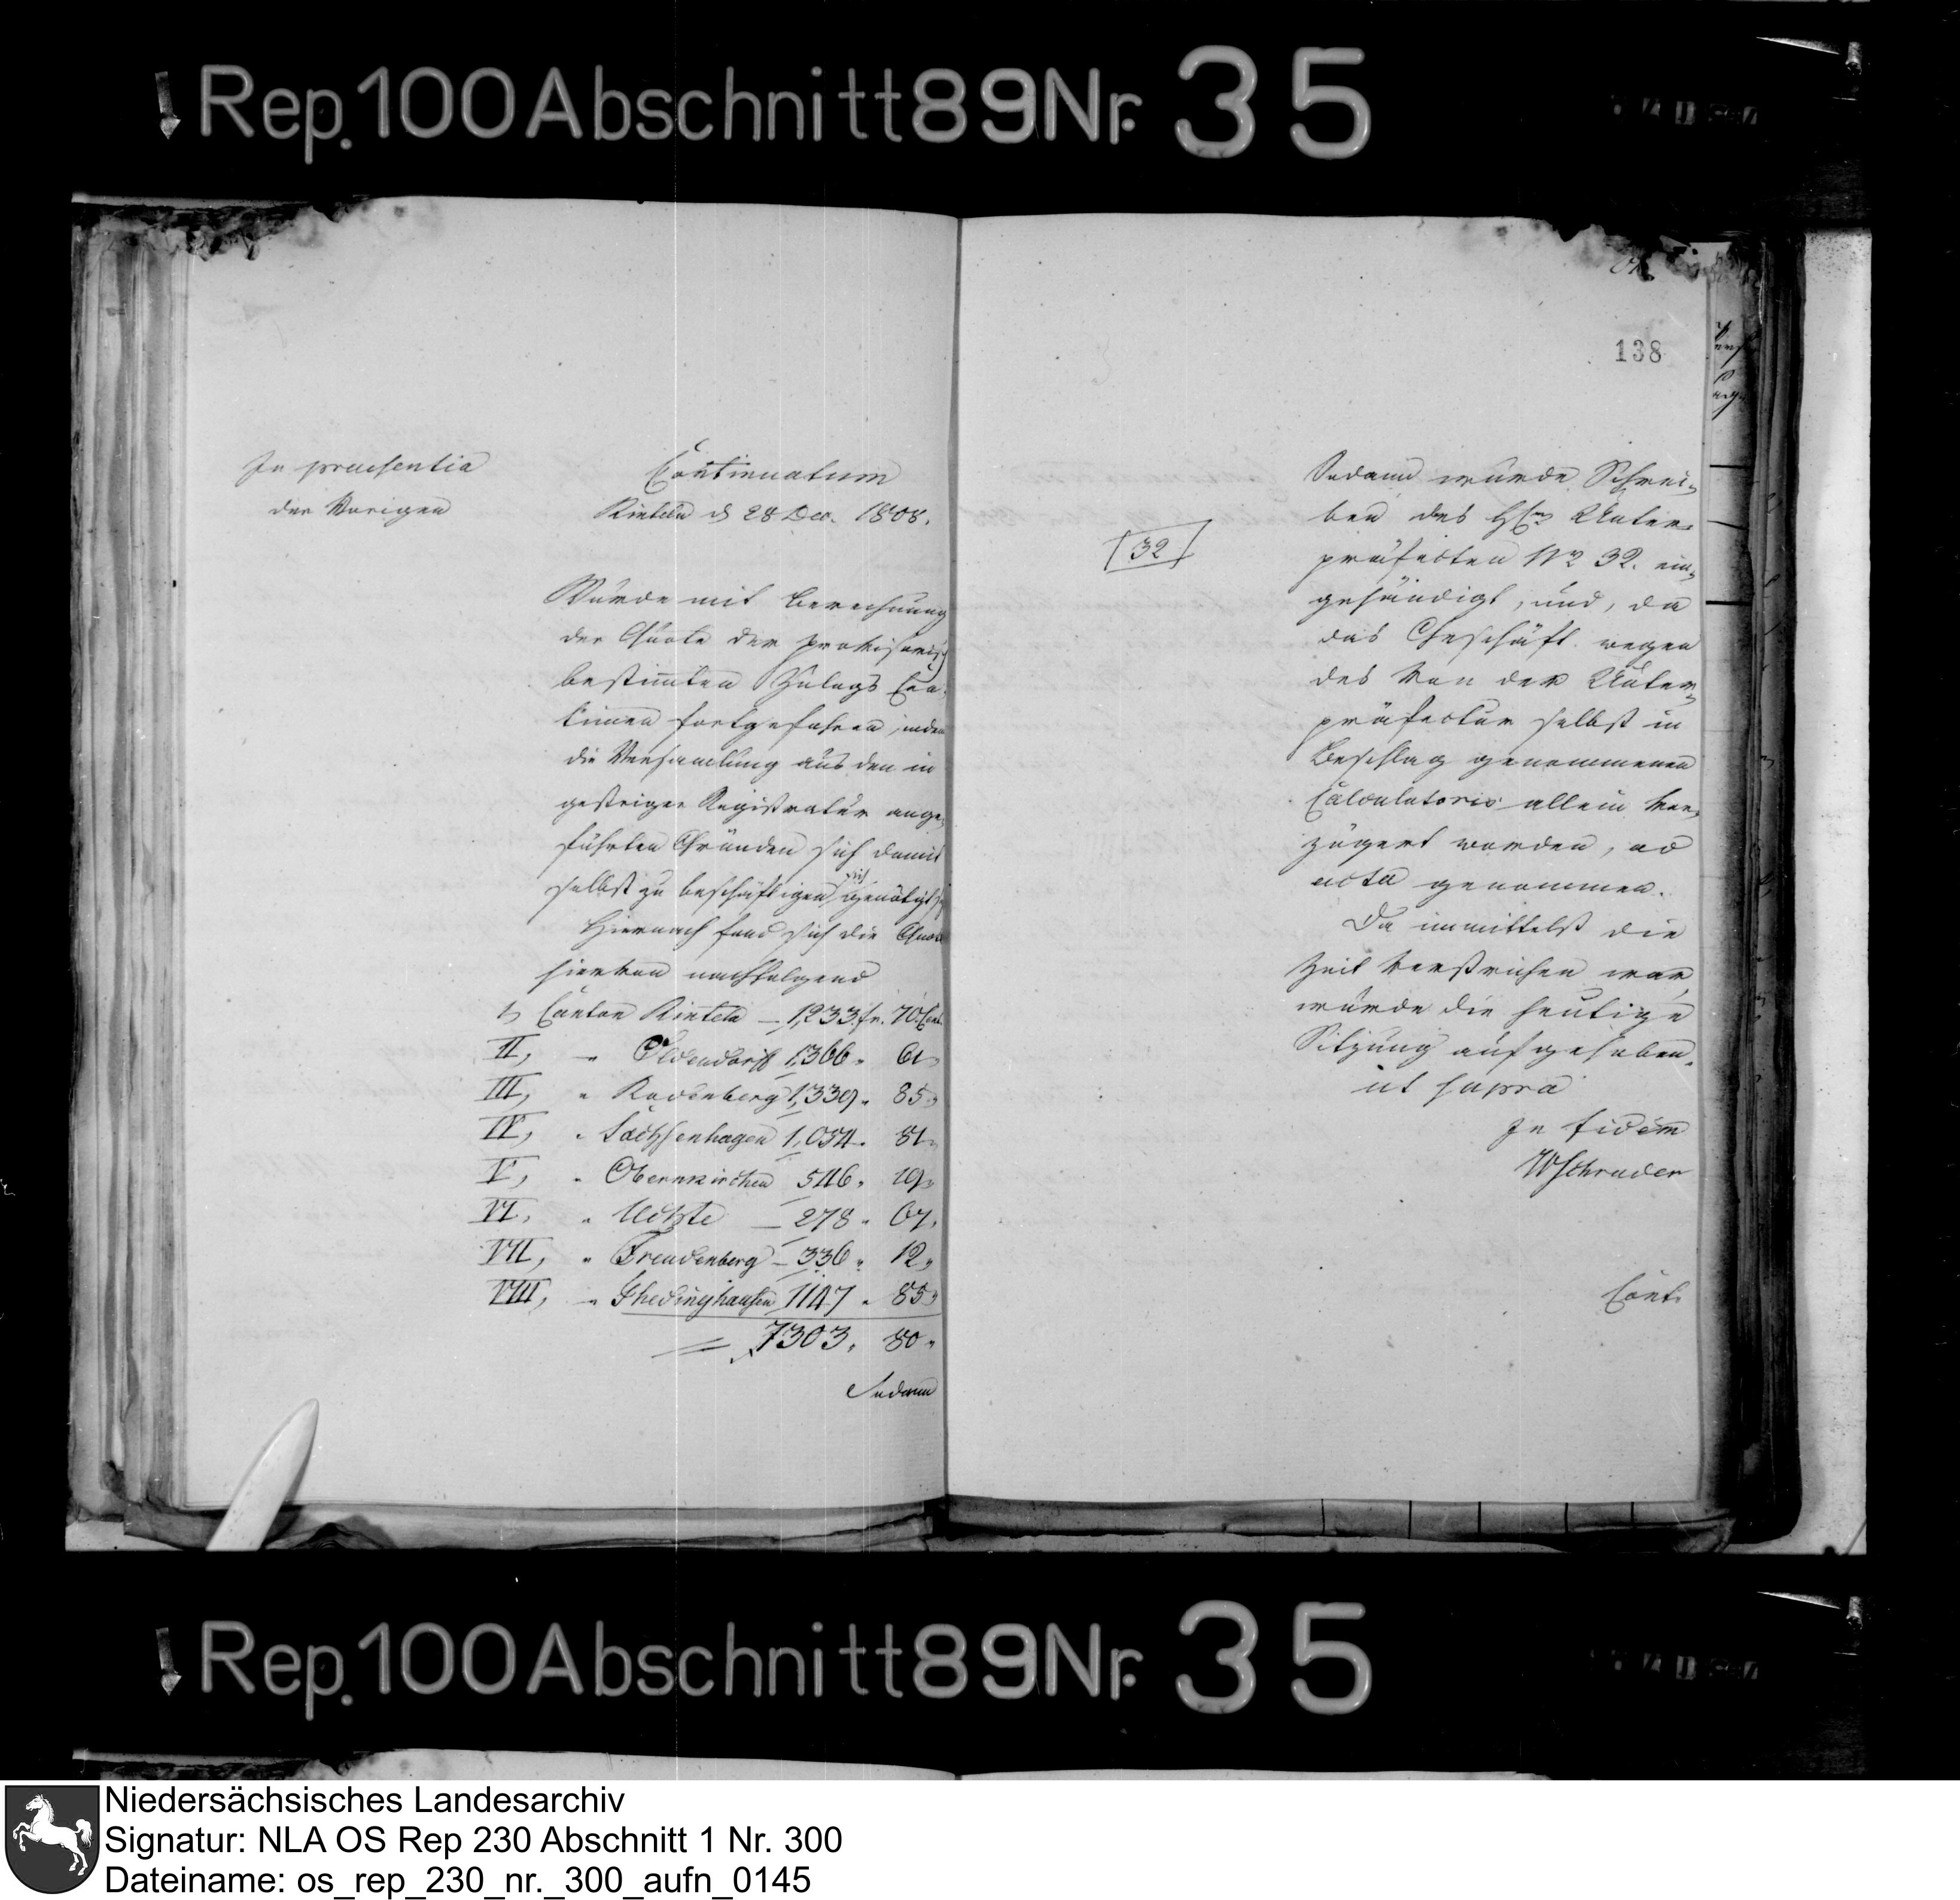 Rep. 100 Abschnitt 89 Nr. 35
In praesentia
der Vorigen
Continuatum
Rinteln d 28 Dec. 1808.
Wurde mit Berechnung
der Quote der provisorisch
bestimten Zulags Cen-
timen fortgefahren, indem
die Versamlung aus den in
gestriger Registratur ange-
führten Gründen sich damit
selbst zu beschäftigen genötigt
Hiernach fand sich die Quote
hiervon nachfolgend
I, Canton Rinteln — 1,233. fr. 70. Cent.
II, " Oldendorff 1,366 " 61 "
III, " Rodenberg 1,339 " 85 "
IV, " Sachsenhagen 1,054 " 81 "
V, " Obernkirchen 546 " 19 "
VI, " Uchte — 278 " 67 "
VII, " Freudenberg — 336 " 12 "
VIII, " 1147 " 85 "
= 7303, 80 "
Sodann
138
32
Sodann wurde Schrei-
ben des H Unter-
präfecten No 32. ein-
gehändigt, und, da
das Geschäft wegen
des von der Unter-
präfectur selbst in
Beschlag genommenen
Calculatoris allein ver-
zögert worden, ad
acta genommen.
Da immittelst die
Zeit verstrichen war,
wurde die heutige
Sitzung aufgehoben.
ut supra
In fidem
WSchrader
Cont.
Rep. 100 Abschnitt 89 Nr. 35
Niedersächsisches Landesarchiv
Signatur: NLA OS Rep 230 Abschnitt 1 Nr. 300
Dateiname: os_rep_230_nr._300_aufn_0145